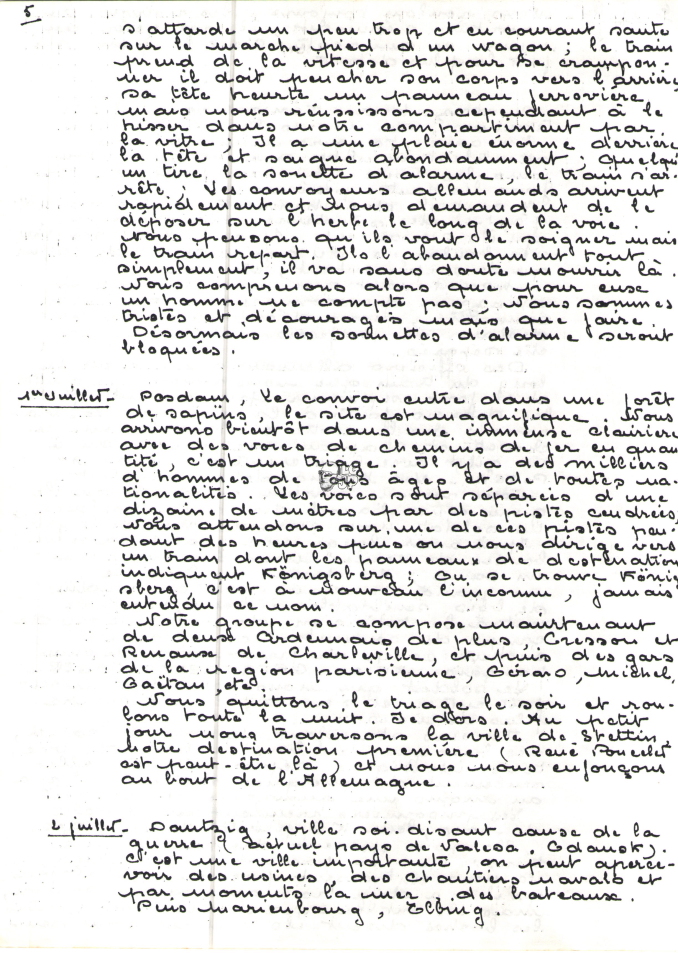 5
s'attarde un peu trop et en courant saute
sur le marche pied d'un wagon ; le train
prend de la vitesse et pour se crampon-
ner il doit pencher son corps vers l'arrière
sa tête heurte un panneau ferrovière
mais nous réussissons cependant à le
hisser dans notre compartiment par
la vitre ; Il a une plaie énorme derrière
la tête et saigne abondamment ; quelqu'
un tire la sonette d'alarme, le train s'ar-
rête ; Les convoyeurs allemands arrivent
rapidement et nous demandent de le
déposer sur l'herbe le long de la voie.
Nous pensons qu'ils vont le soigner mais
le train repart. Ils l'abandonnent tout
simplement, il va sans doute mourrir là.
Nous comprenons alors que pour eux
un homme ne compte pas ; nous sommes
tristes et découragés mais que faire.
Désormais les sonnettes d'alarme seront
bloquées.
1er Juillet - Posdam, Le convoi entre dans une forêt
de sapins, le site est magnifique. Nous
arrivons bientôt dans une immense clairière
avec des voies de chemins de fer en quan
tité, c'est un triage. Il y a des milliers
d'hommes de tous âges et de toutes na-
tionalités. Les voies sont séparées d'une
dizaine de mètres par des pistes cendrées,
nous attendons sur une de ces pistes pen-
dant des heures puis on nous dirige vers
un train dont les panneaux de destination
indiquent Königsberg ; Ou se trouve König
sberg, c'est à nouveau l'inconnu, jamais
entendu ce nom.
Notre groupe se compose maintenant
de deux Ardennais de plus, Cresson et
Renaux de Charleville, et puis des gars
de la région parisienne, Gérard, Michel,
Gaëtan, etc.
Nous quittons le triage le soir et rou-
lons toute la nuit. Je dors. Au petit
jour nous traversons la ville de Stettin,
notre destination première (René Poncelet
est peut-être là) et nous nous enfonçons
au bout de l'Allemagne.
2 juillet - Dantzig, ville soi-disant cause de la
guerre (actuel pays de Valesa. Gdansk).
C'est une ville importante, on peut aperce-
voir des usines, des chantiers navals et
par moments la mer, des bateaux.
Puis Marienbourg, Elbing.